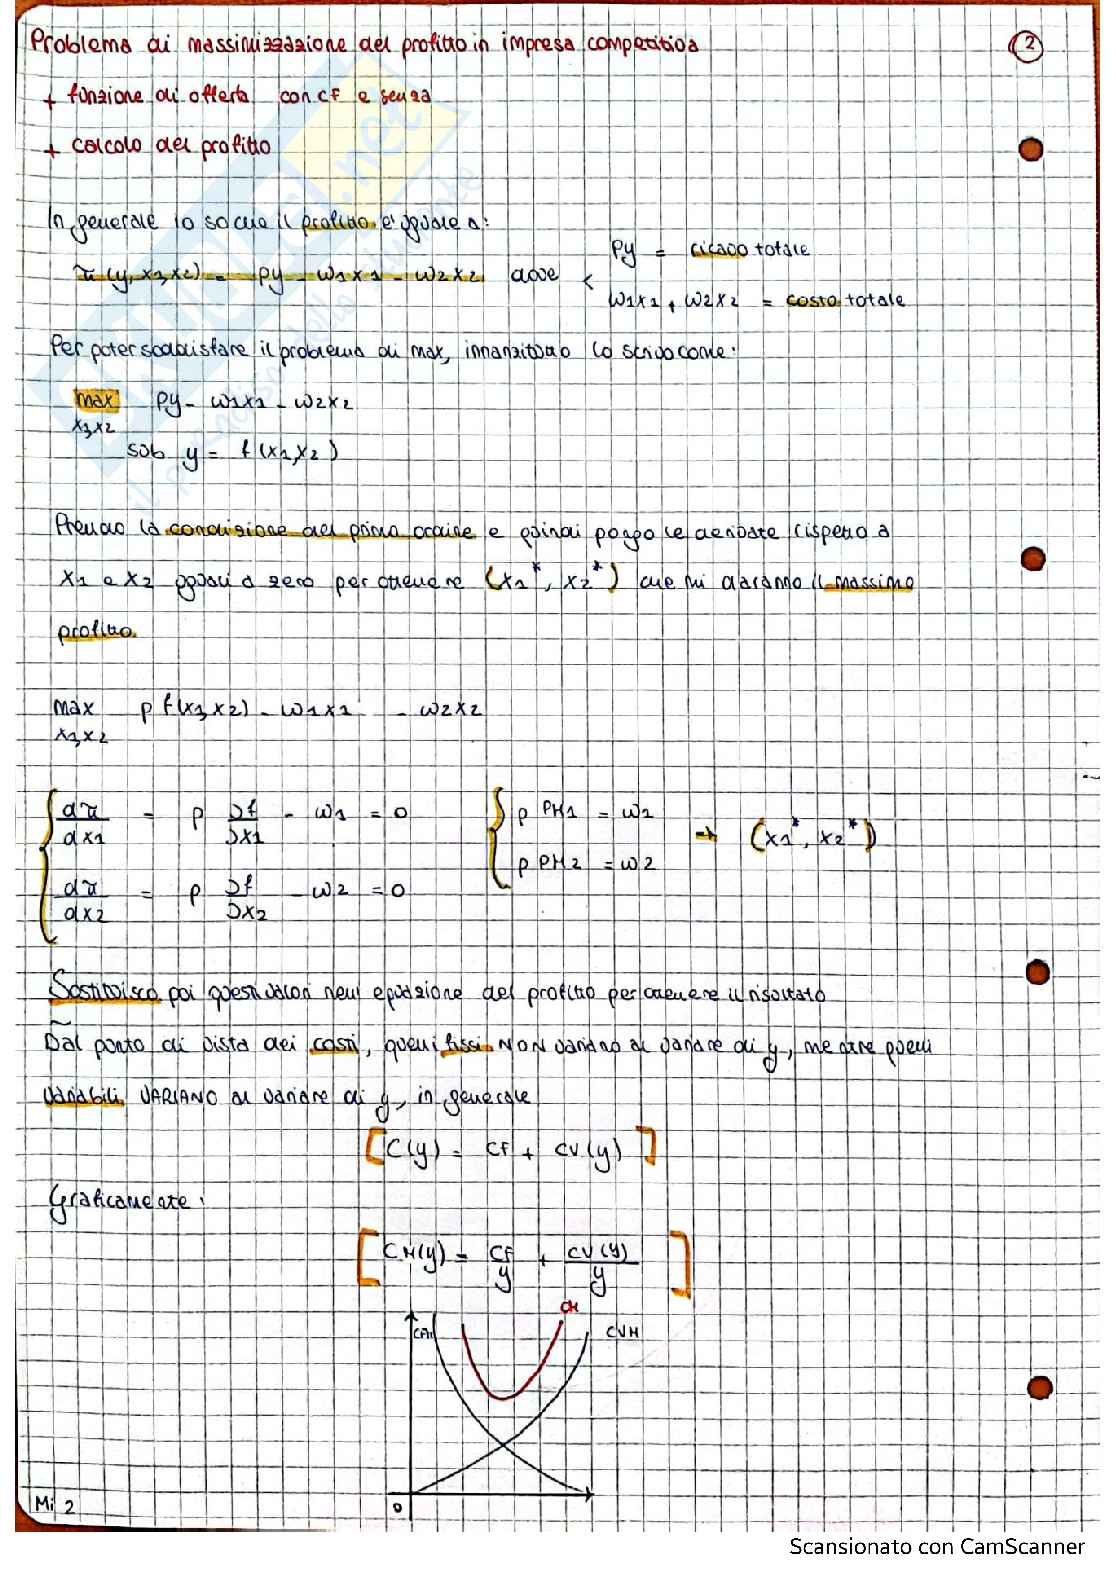 Problema di massimizzazione del profitto in impresa competitiva
2
+ funzione di offerta con CF e senza
+ calcolo del profitto
In generale io so che il profitto è uguale a:
π(y, x1, x2) = py - w1x1 - w2x2 dove < py = ricavo totale
w1x1, w2x2 = costo totale
Per poter soddisfare il problema di max, innanzitutto lo scrivo come:
max py - w1x1 - w2x2
x1,x2
sub y = f(x1,x2)
Prendo la condizione del primo ordine e quindi pongo le derivate rispetto a
x1 e x2 uguali a zero per ottenere (x1*, x2*) che mi daranno il massimo
profitto.
max p f(x1,x2) - w1x1 - w2x2
x1,x2
dπ/dx1 = p ∂f/∂x1 - w1 = 0
p PM1 = w1
→ (x1*, x2*)
p PM2 = w2
dπ/dx2 = p ∂f/∂x2 - w2 = 0
Sostituisco poi questi valori nell'equazione del profitto per ottenere il risultato
Dal punto di vista dei costi, quelli fissi NON variano al variare di y, mentre quelli
variabili VARIANO al variare di y, in generale
[C(y) = CF + CV(y)]
Graficamente:
[CM(y) = CF/y + CV(y)/y]
CM
CFM
CVM
0
Mi 2
Scansionato con CamScanner